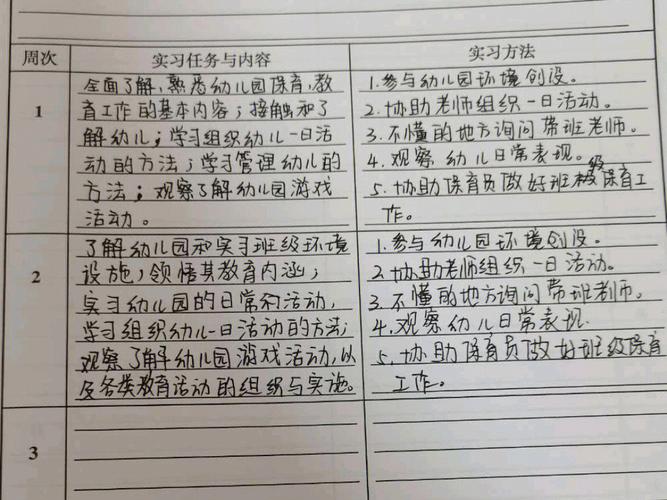 周次 实习任务与内容 实习方法
1
全面了解,熟悉幼儿园保育,教
育工作的基本内容;接触和了
解幼儿;学习组织幼儿一日活
动的方法;学习管理幼儿的
方法;观察了解幼儿园游戏
活动。
1.参与幼儿园环境创设。
2.协助老师组织一日活动。
3.不懂的地方询问带班老师。
4.观察幼儿日常表现。
5.协助保育员做好班级保育工
作。
2
了解幼儿园和实习班级环境
设施,领悟其教育内涵;
实习幼儿园的日常的活动,
学习组织幼儿一日活动的方法;
观察了解幼儿园游戏活动,以
及各类教育活动的组织与实施。
1.参与幼儿园环境创设。
2.协助老师组织一日活动。
3.不懂的地方询问带班老师。
4.观察幼儿日常表现.
5.协助保育员做好班级保育
工作。
3